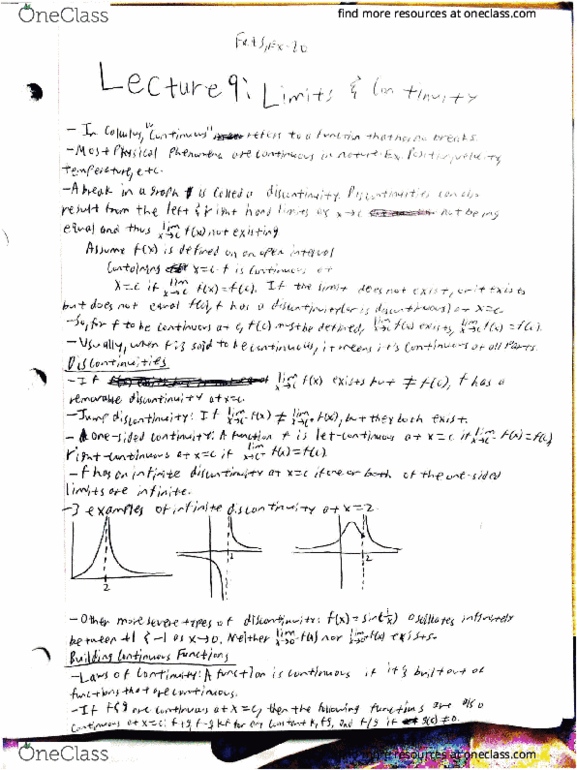 OneClass
find more resources at oneclass.com
Lecture 9: Limits & Continuity
- In Calculus, "Continuous" refers to a function that has no breaks.
- Most Physical Phenomena are continuous in nature. Ex. Position, velocity,
temperature, etc.
- A break in a graph is called a discontinuity. Discontinuities can also
result from the left & right hand limits as x→c not being
equal and thus lim x→c f(x) not existing
Assume f(x) is defined on an open interval
Containing x=c. f is continuous at
x=c if lim x→c f(x)=f(c). If the limit does not exist, or it exists
but does not equal f(c), f has a discontinuity (or is discontinuous) at x=c
- So, for f to be continuous at c, f(c) must be defined, lim x→c f(x) exists, lim x→c f(x)=f(c).
- Usually, when f is said to be continuous, it means it's continuous at all points.
Discontinuities
- If lim x→c f(x) exists but ≠ f(c), f has a
removable discontinuity at x=c.
- Jump discontinuity: If lim x→c⁻ f(x) ≠ lim x→c⁺ f(x), but they both exist.
- one-sided continuity: A function f is left-continuous at x=c if lim x→c⁻ f(x)=f(c)
right-continuous at x=c if lim x→c⁺ f(x)=f(c).
- f has an infinite discontinuity at x=c if one or both of the one-sided
limits are infinite.
- 3 examples of infinite discontinuity at x=2.
2
2
2
- Other more severe types of discontinuity: f(x)=sin(1/x) oscillates infinitely
between +1 & -1 as x→0. Neither lim x→0⁻ f(x) nor lim x→0⁺ f(x) exists.
Building Continuous Functions
- Laws of Continuity: A function is continuous if it's built out of
functions that are continuous.
- If f & g are continuous at x=c, then the following functions are also
continuous at x=c: f+g, f-g, kf for any constant k, fg, and f/g if g(c)≠0.
OneClass
find more resources at oneclass.com